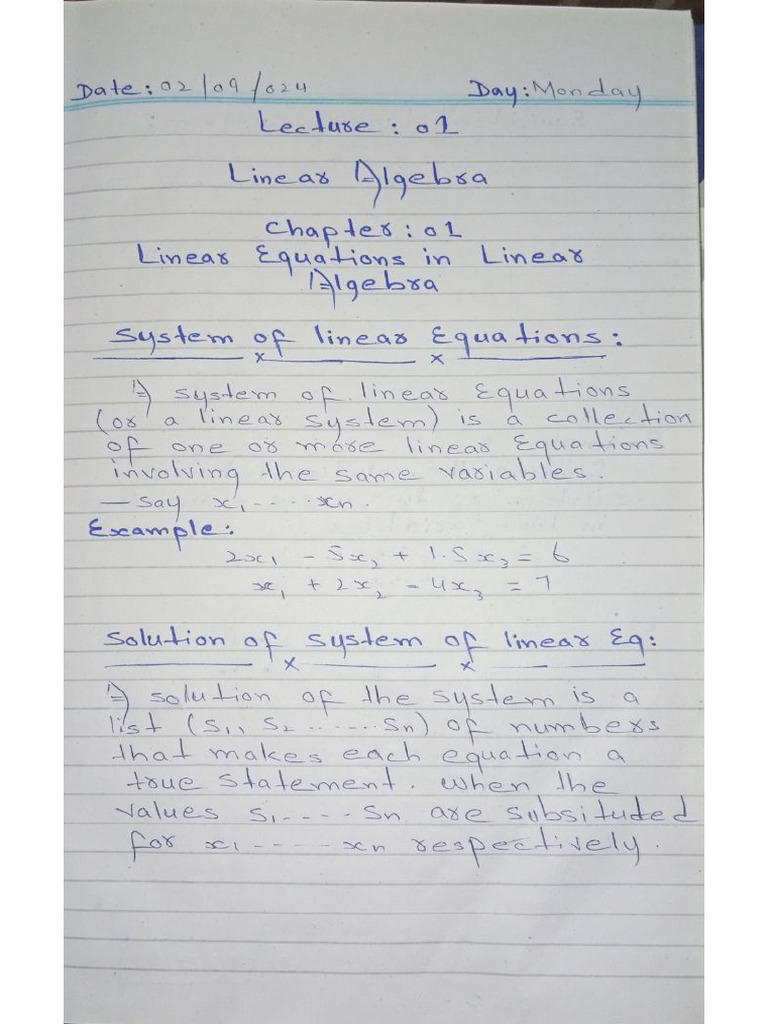 Date: 02/09/024 Day: Monday
Lecture : 01
Linear Algebra
Chapter : 01
Linear Equations in Linear
Algebra
System of linear Equations :
A system of linear Equations
(or a linear system) is a collection
of one or more linear Equations
involving the same variables.
— say x₁ ..... xn.
Example:
2x₁ - 5x₂ + 1.5x₃ = 6
x₁ + 2x₂ - 4x₃ = 7
Solution of system of linear Eq:
A solution of the system is a
list (S₁, S₂ ...... Sn) of numbers
that makes each equation a
true statement. when the
values S₁ - - - - Sn are subsituded
for x₁ - - - - - xn respectively.